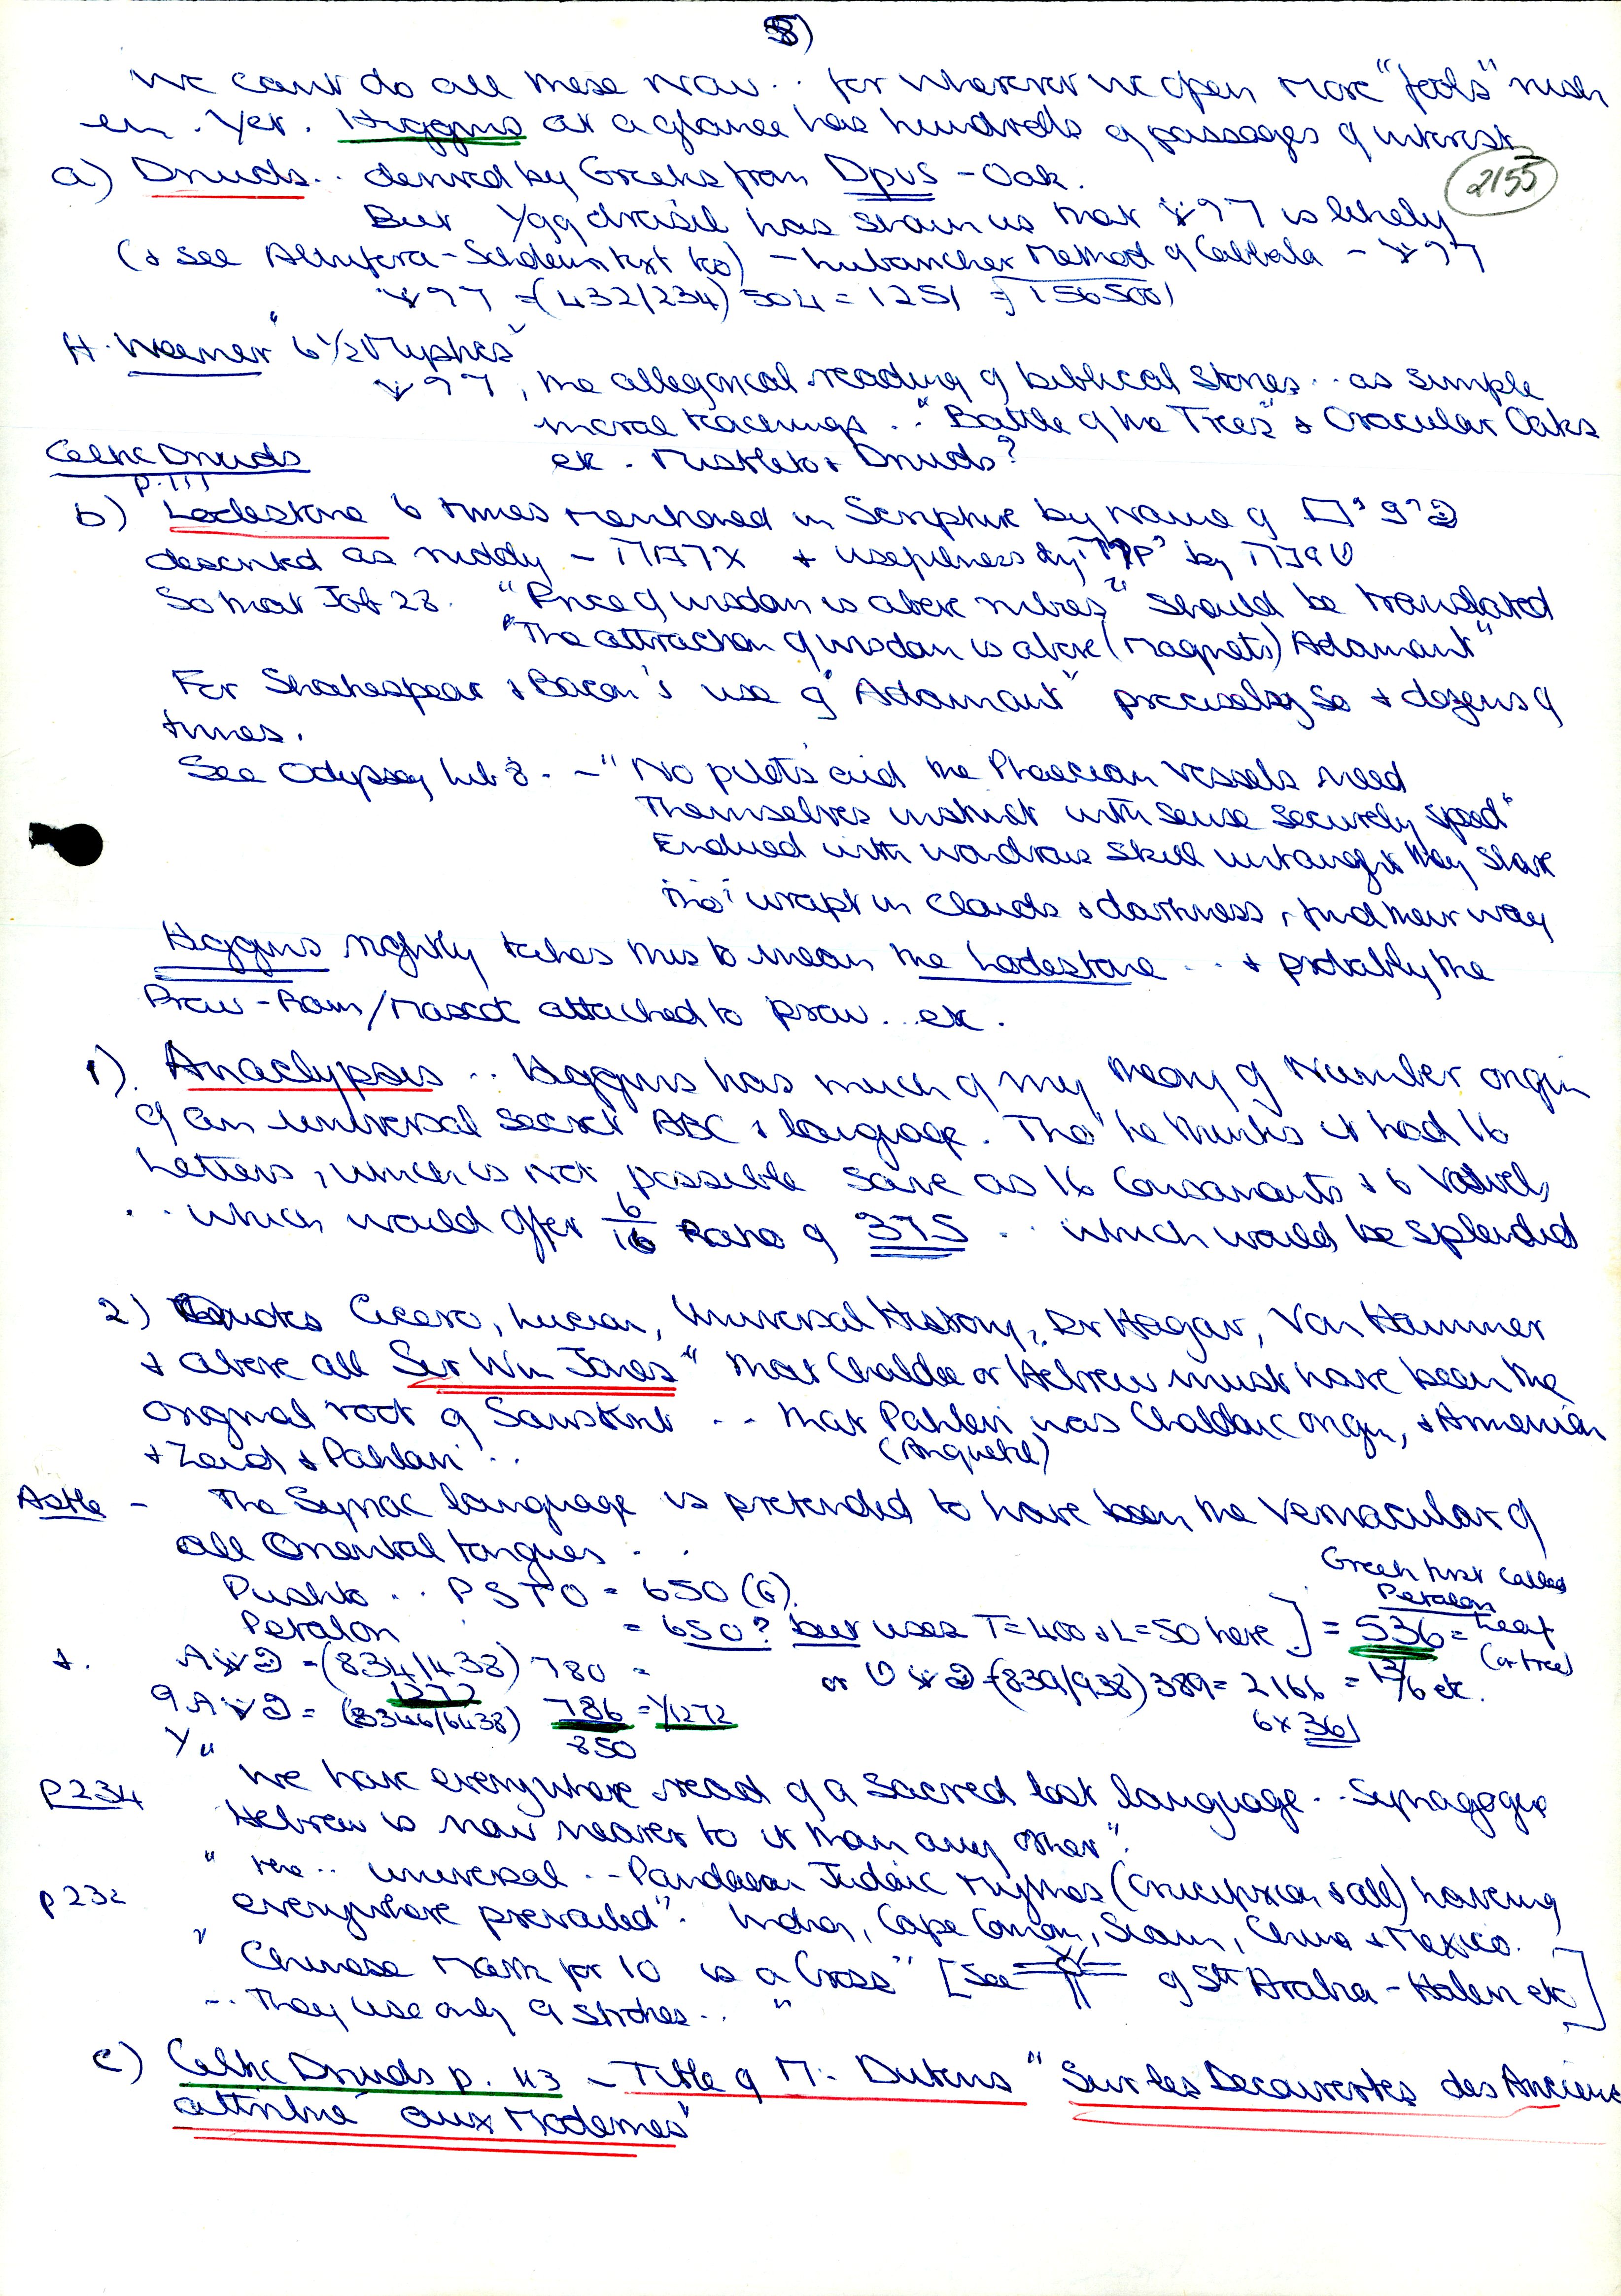 8)
We can't do all these now .. for wherever we open more "fools" rush
in. Yet. Higgins at a glance has hundreds of passages of interest
2155
a) Druids .. derived by Greeks from Dρυς - Oak.
But Yggdrasil has shown us that is likely
(& see - text too) - Method of Cabbala -
= (432/234) 504 = 1251
H. "6 1/2
, the allegorical reading of biblical stories .. as simple
moral teachings .. "Battle of the Trees" & Oracular Oaks
etc. Mistletoe Druids?
Celtic Druids
p. 111
b) Lodestone 6 times mentioned in Scripture by name of
described as ruddy - & usefulness by
So that Job 28. "Price of wisdom is above rubies" should be translated
"The attraction of wisdom is above (magnets) Adamant"
For Shakespear & Bacon's use of "Adamant" precisely so & dozens of
times.
See Odyssey Lib 8. - "No pilots aid the Phaecian vessels need
Themselves instinct with sense securely speed"
Endued with wondrous skill untaught they share
Tho' wrapt in clouds & darkness, find their way
Higgins rightly takes this to mean the Lodestone ... & probably the
Prow-Ram/Mascot attached to prow .. etc.
1). Anaclypsis .. Higgins has much of my theory of Number origin
of an universal secret ABC & language. Tho' he thinks it had 16
Letters, which is not possible save as 16 Consonants & 6 Vowels
.. which would offer 6/16 Ratio of 375 .. which would be splendid
2) Quotes Cicero, Lucian, Universal History, Dr Hagar, Von Hammer
& above all Sir Wm Jones "that Chaldee or Hebrew must have been the
original root of Sanskrit .. that Pahlevi was Chaldaic origin, & Armenian
& Zend & Pahlavi .. (Anquetil)
Astle - The Syriac language is pretended to have been the vernacular of
all Oriental tongues ..
Pushto .. PSTO = 650 (G).
Greek first called
Petalon
Petalon = 650? but uses T=400 & L=50 here ] = 536 = Leaf
(or tree)
&. = (834/438) 780 = 1272 or = (839/938) 389 = 2166 = 13/6 etc.
= (8346/6438) 786 = 1/1272 6 x 361
850
p234 "We have everywhere read of a sacred lost language .. Synagogue
Hebrew is now nearer to it than any other".
p232 "the .. universal .. Pandaean Judaic mythos (crucifixion & all) having
everywhere prevailed". India, Cape Comorin, Siam, China & Mexico.
"Chinese mark for 10 is a Cross" [See of Stt - etc]
.. They use only 9 strokes .. "
c) Celtic Druids p. 113 - Title of M. Dutens "Sur les Decouvertes des Anciens
attribué aux Modernes"